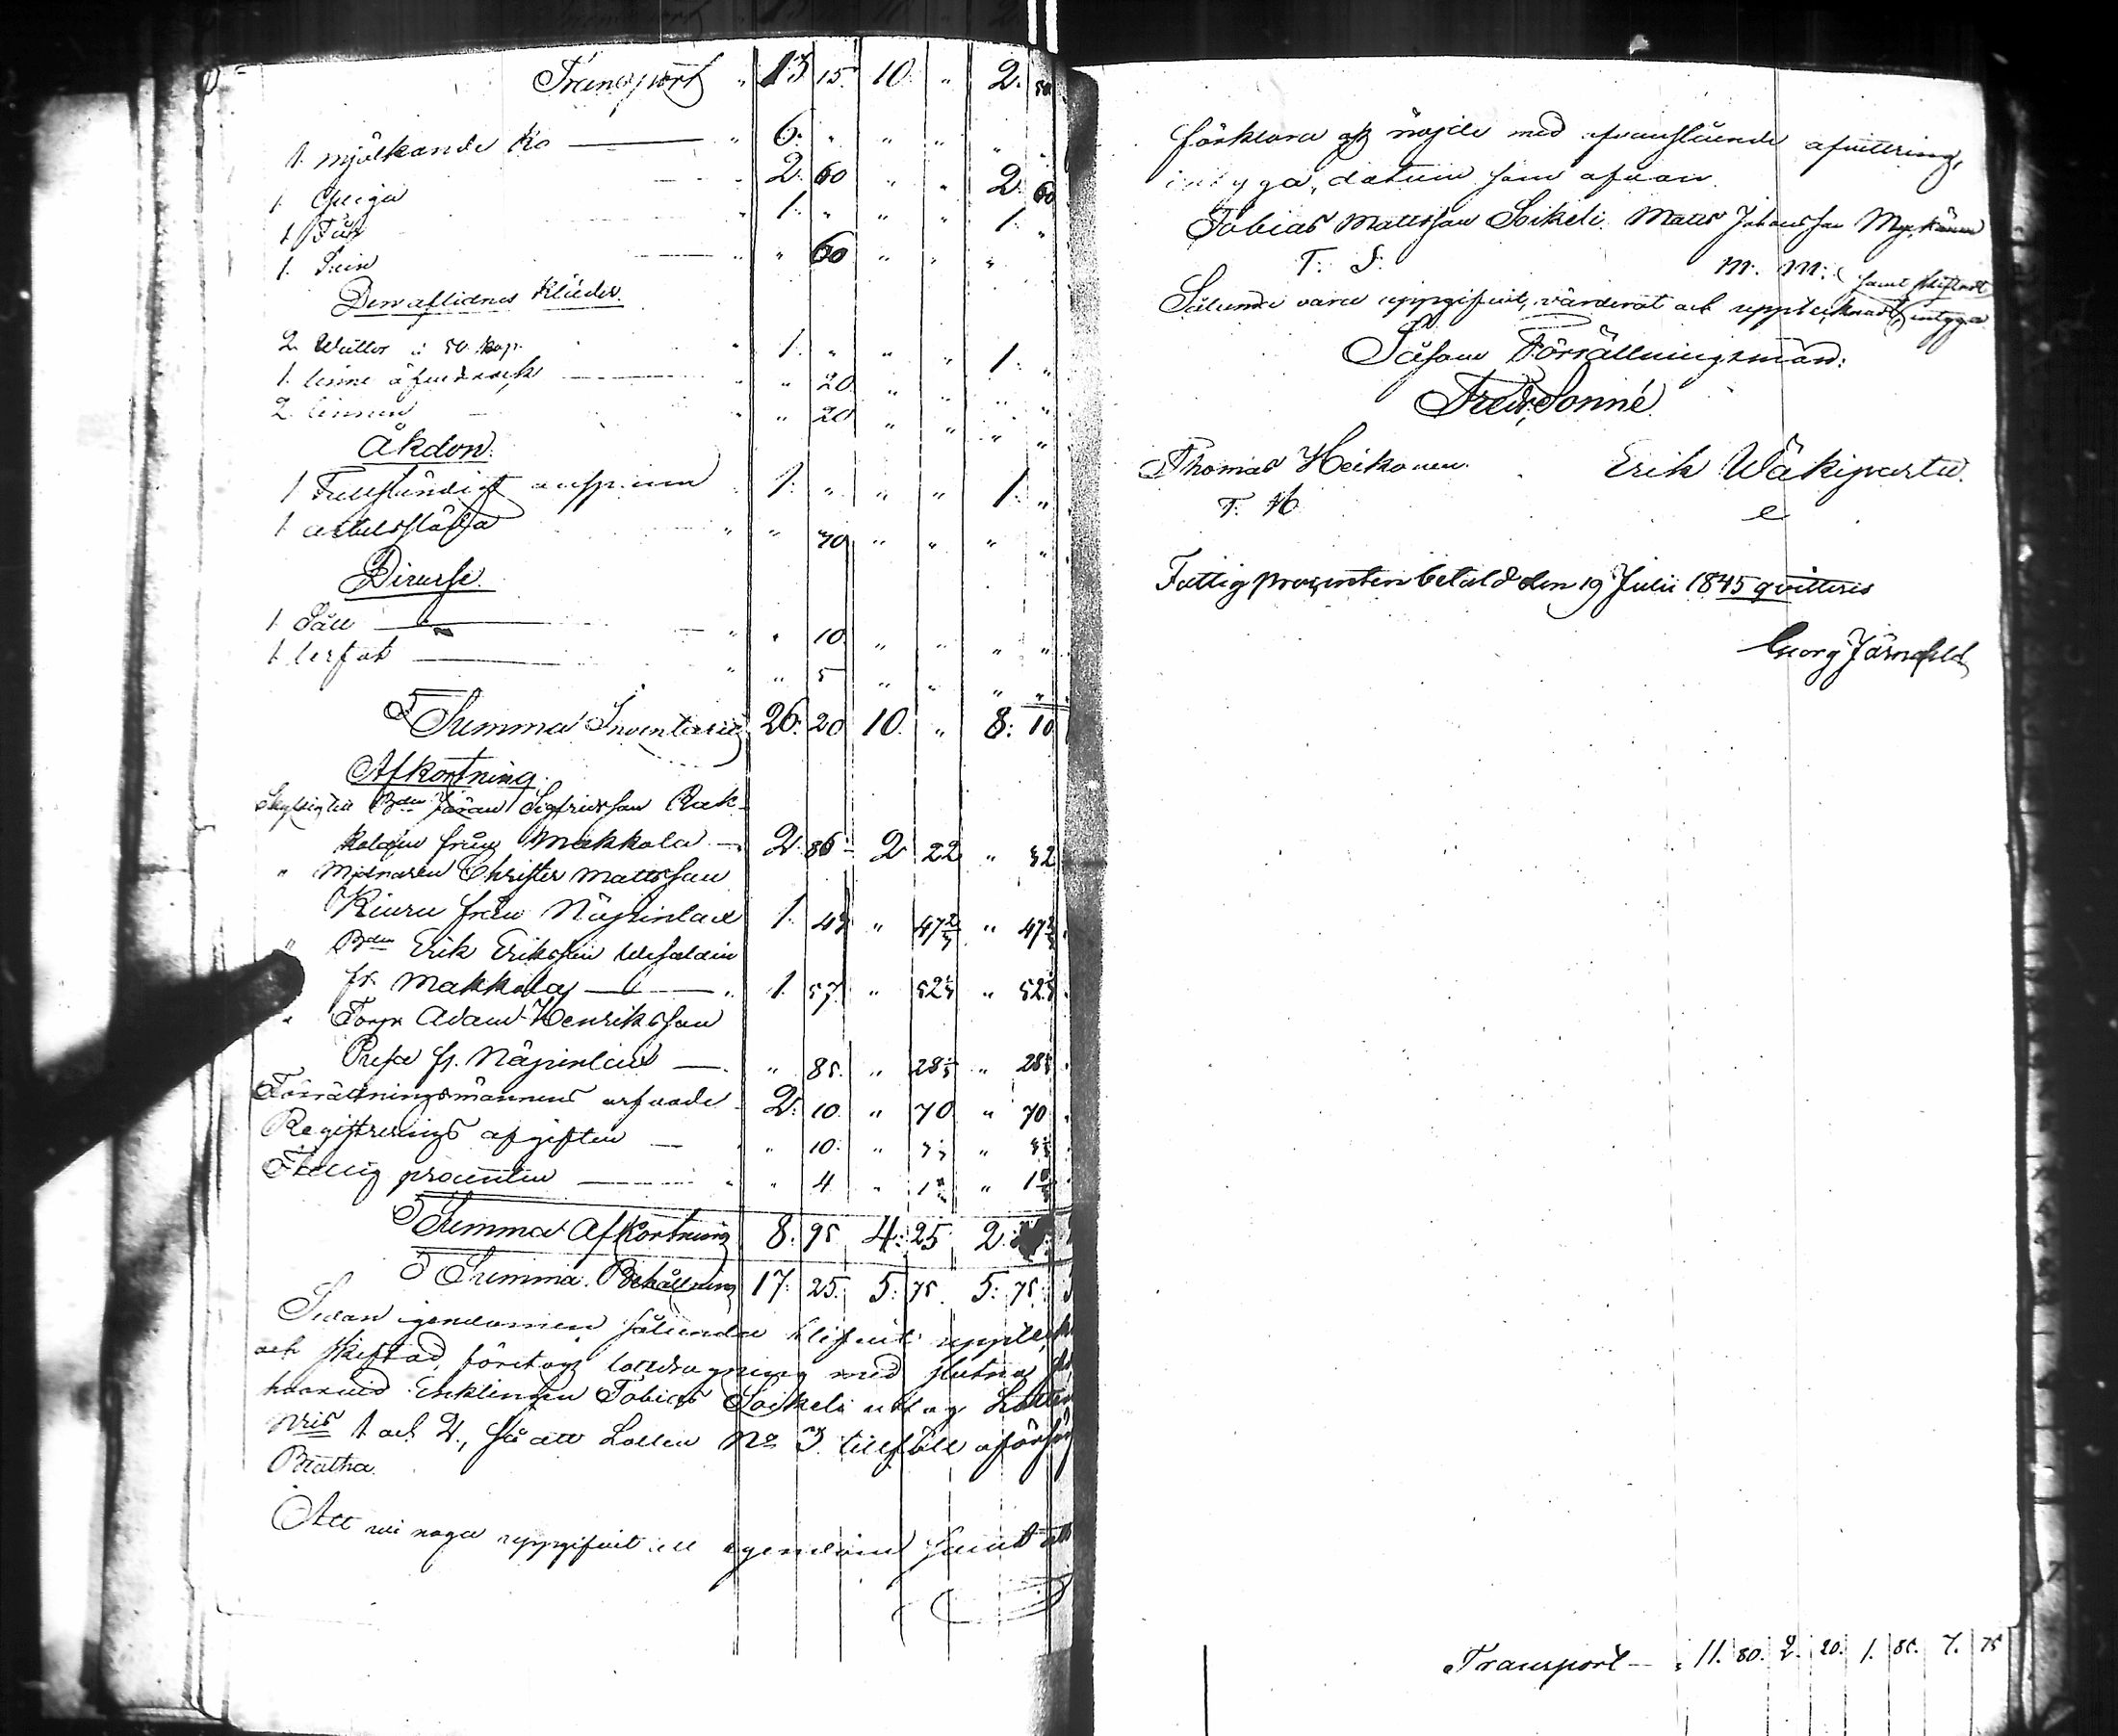 Transport " 13 15. 10. " 2. 50
1 mjölkande Ko " 6. " " " " "
1 Qviga 2. 60 " " 2. 60
1 Får " 1. " " " 1. "
1. Svin " " 60 " " "
Den aflidnes Kläder.
2 Wällor à 50 kop. " 1. " " " 1. "
1. linne " 20. " " " "
2 linnen " " 20 " " " "
Åkdon.
1 Fullständigt anspann " 1. " " " 1. "
1 arbetssläda " " 70 " " " "
Diverse.
1 Såll " " 10. " " " "
1 lerfat " " 5 " " " "
Summa Inventarii 26. 20 10. " 8: 10
Afkortning.
Skyldig till Bdn Jöran Sigfridsson Rak-
kolain från Makkola 2. 86 2 22 " 32
" Mjölnaren Christer Mattsson
Kiuru från 1. 43 " 47 2/3 " 47 2/3
" Bdn Erik Eriksson
fr. Makkola " 1. 57. " 52 1/3 " 52 1/3
" Torpr Adam Henriksson
fr. " 85. " 28 1/3 " 28 1/3
Förrättningsmännens arfvode 2. 10. " 70 " 70
Registrerings afgiften " 10. " 3 1/3 " 3 1/3
Fattig procenten " 4 " 1 " 1
Summa Afkortning 8. 95 4. 25 2.
Summa Behållning 17: 25. 5: 75. 5: 75.
Sedan egendomen sålunda blifvit
och skiftad, företogs lottdragning med slutna
hvarvid Enklingen Tobias Soikeli uttog Lotten
Nris 1 och 2, så att Lotten No 3 tillföll
Beatha.
Att vi noga uppgifvit all egendom samt att
förklara oss nöjde med ofvanstående afvittring,
intyga, datum som ofvan.
Tobias Mattsson Soikeli. Matts Johansson
T. S. M. M.
Sålunda vara uppgifvit, värderat och upptecknadt, samt skiftadt intyga
Såsom Förrättningsmän:
Fredr. Sonné.
Thomas Heikonen. Erik Wäkiparta.
T. H e
Fattig procenten betald den 19 Julii 1845 qvitteras
Georg Järnefelt
Transport " 11. 80. 2. 20. 1. 85. 7. 75